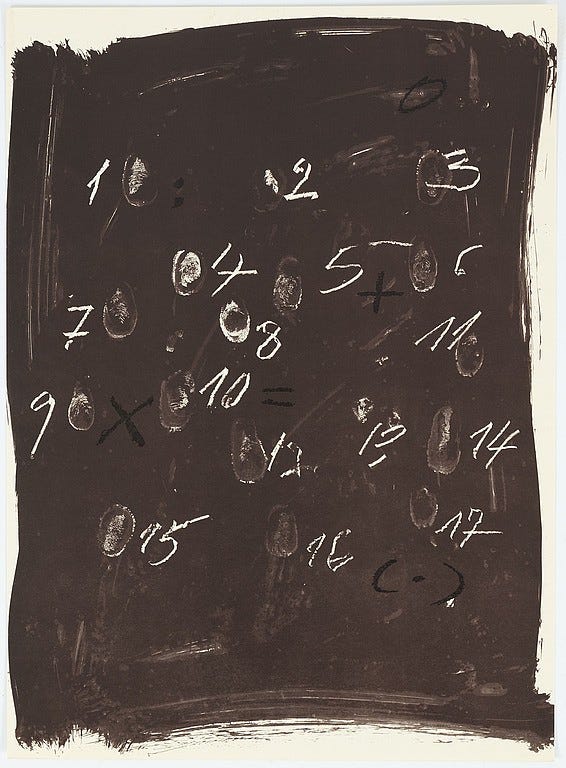 0
1 : 2 3
4 5 + 6
7 8 11
9 × 10 =
12 14
15 16 17
(·)